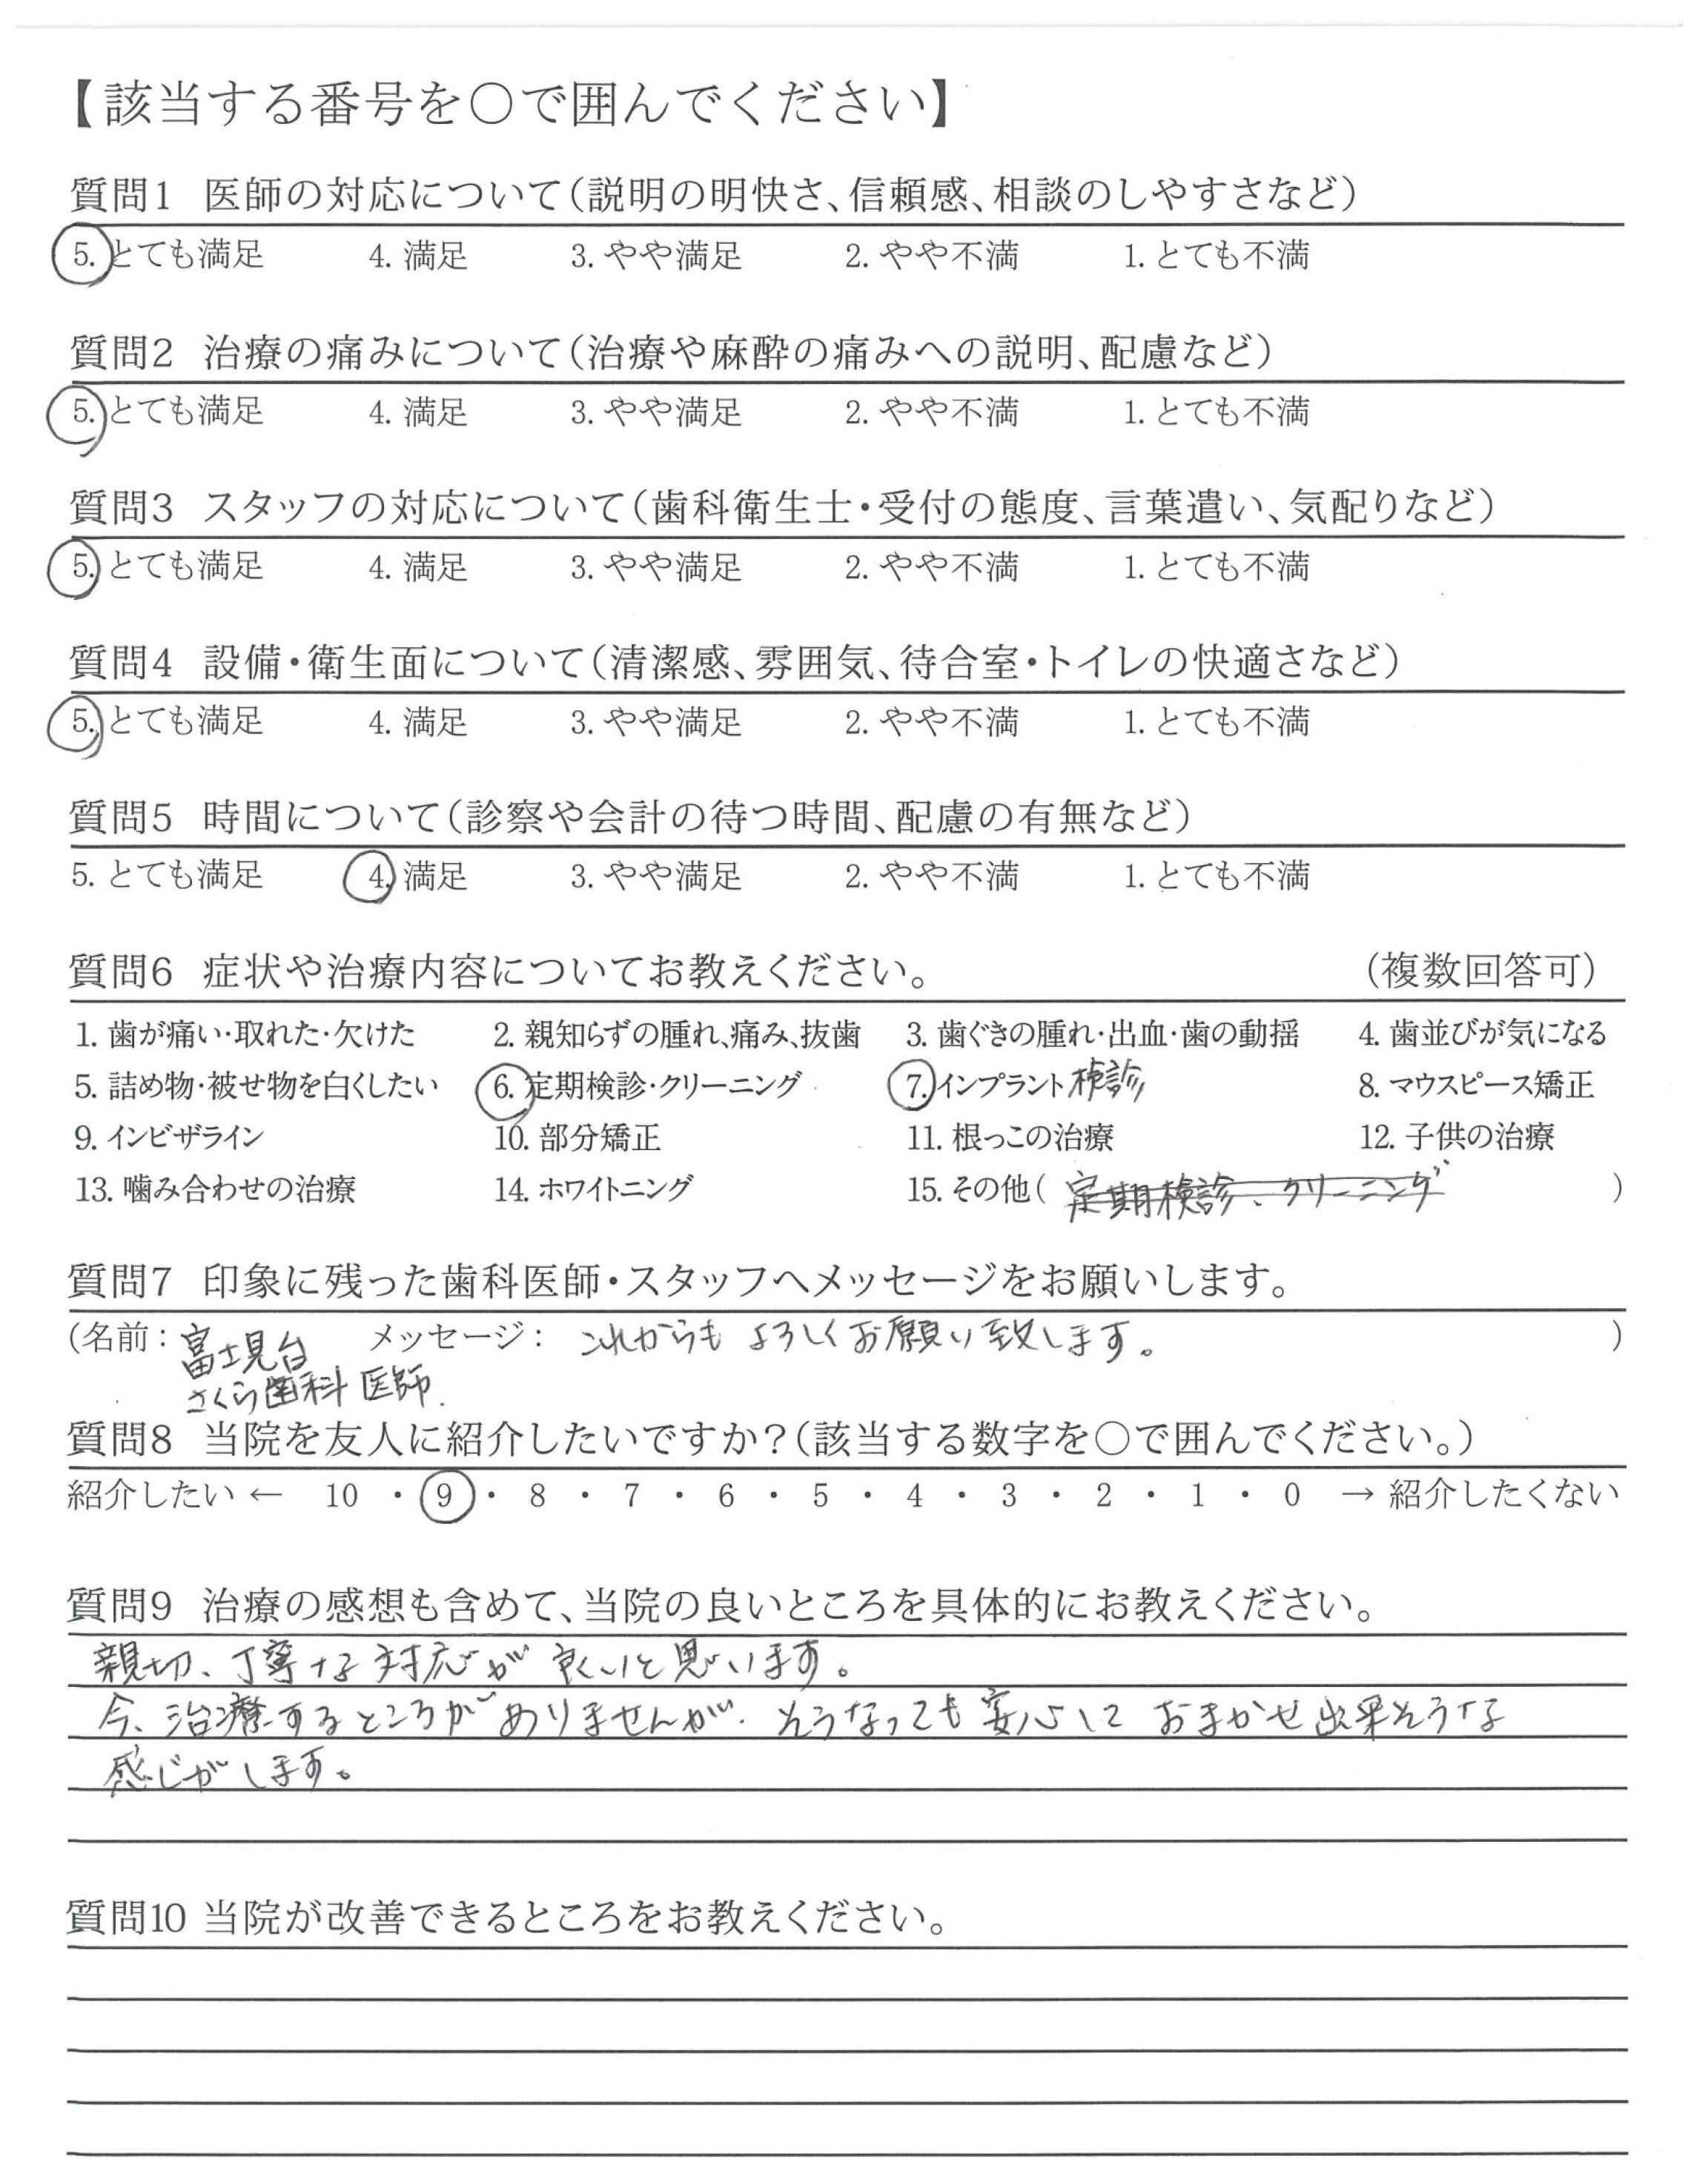 【該当する番号を○で囲んでください】
質問1 医師の対応について(説明の明快さ、信頼感、相談のしやすさなど)
5. とても満足 4. 満足 3. やや満足 2. やや不満 1. とても不満
質問2 治療の痛みについて(治療や麻酔の痛みへの説明、配慮など)
5. とても満足 4. 満足 3. やや満足 2. やや不満 1. とても不満
質問3 スタッフの対応について(歯科衛生士・受付の態度、言葉遣い、気配りなど)
5. とても満足 4. 満足 3. やや満足 2. やや不満 1. とても不満
質問4 設備・衛生面について(清潔感、雰囲気、待合室・トイレの快適さなど)
5. とても満足 4. 満足 3. やや満足 2. やや不満 1. とても不満
質問5 時間について(診察や会計の待つ時間、配慮の有無など)
5. とても満足 4. 満足 3. やや満足 2. やや不満 1. とても不満
質問6 症状や治療内容についてお教えください。 (複数回答可)
1. 歯が痛い・取れた・欠けた 2. 親知らずの腫れ、痛み、抜歯 3. 歯ぐきの腫れ・出血・歯の動揺 4. 歯並びが気になる
5. 詰め物・被せ物を白くしたい 6. 定期検診・クリーニング 7. インプラント 検診 8. マウスピース矯正
9. インビザライン 10. 部分矯正 11. 根っこの治療 12. 子供の治療
13. 噛み合わせの治療 14. ホワイトニング 15. その他( 定期検診、クリーニング )
質問7 印象に残った歯科医師・スタッフへメッセージをお願いします。
(名前: 富士見台 メッセージ: これからも よろしくお願い致します。 )
さくら歯科 医師.
質問8 当院を友人に紹介したいですか?(該当する数字を○で囲んでください。)
紹介したい ← 10 ・ 9 ・ 8 ・ 7 ・ 6 ・ 5 ・ 4 ・ 3 ・ 2 ・ 1 ・ 0 → 紹介したくない
質問9 治療の感想も含めて、当院の良いところを具体的にお教えください。
親切、丁寧な対応が良いと思います。
今、治療するところがありませんが、そうなっても安心しておまかせ出来そうな
感じがします。
質問10 当院が改善できるところをお教えください。